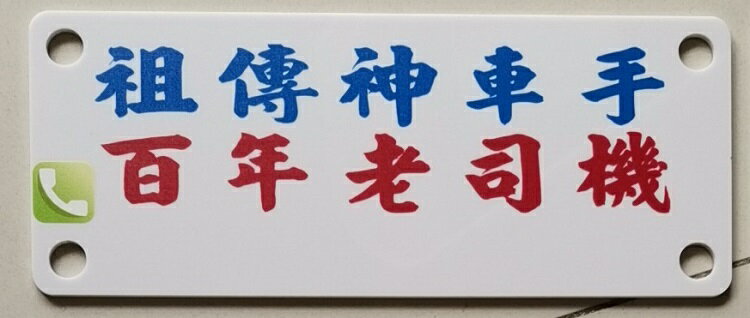 祖傳神車手
百年老司機